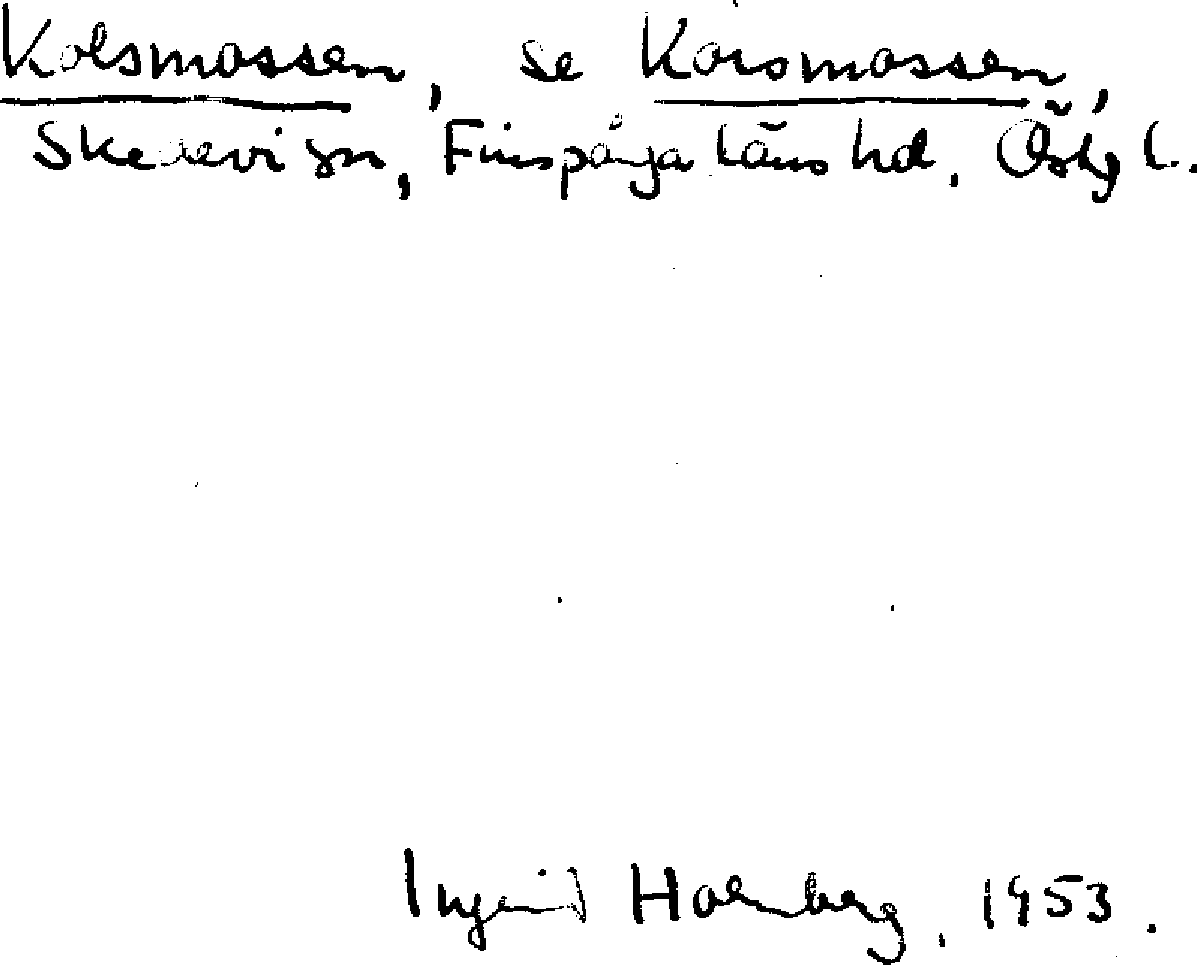 Kolsmossen, se Korsmossen,
Skedevi sn, Finspånga läns hd. Östg l.
Ingrid Holmberg, 1953.